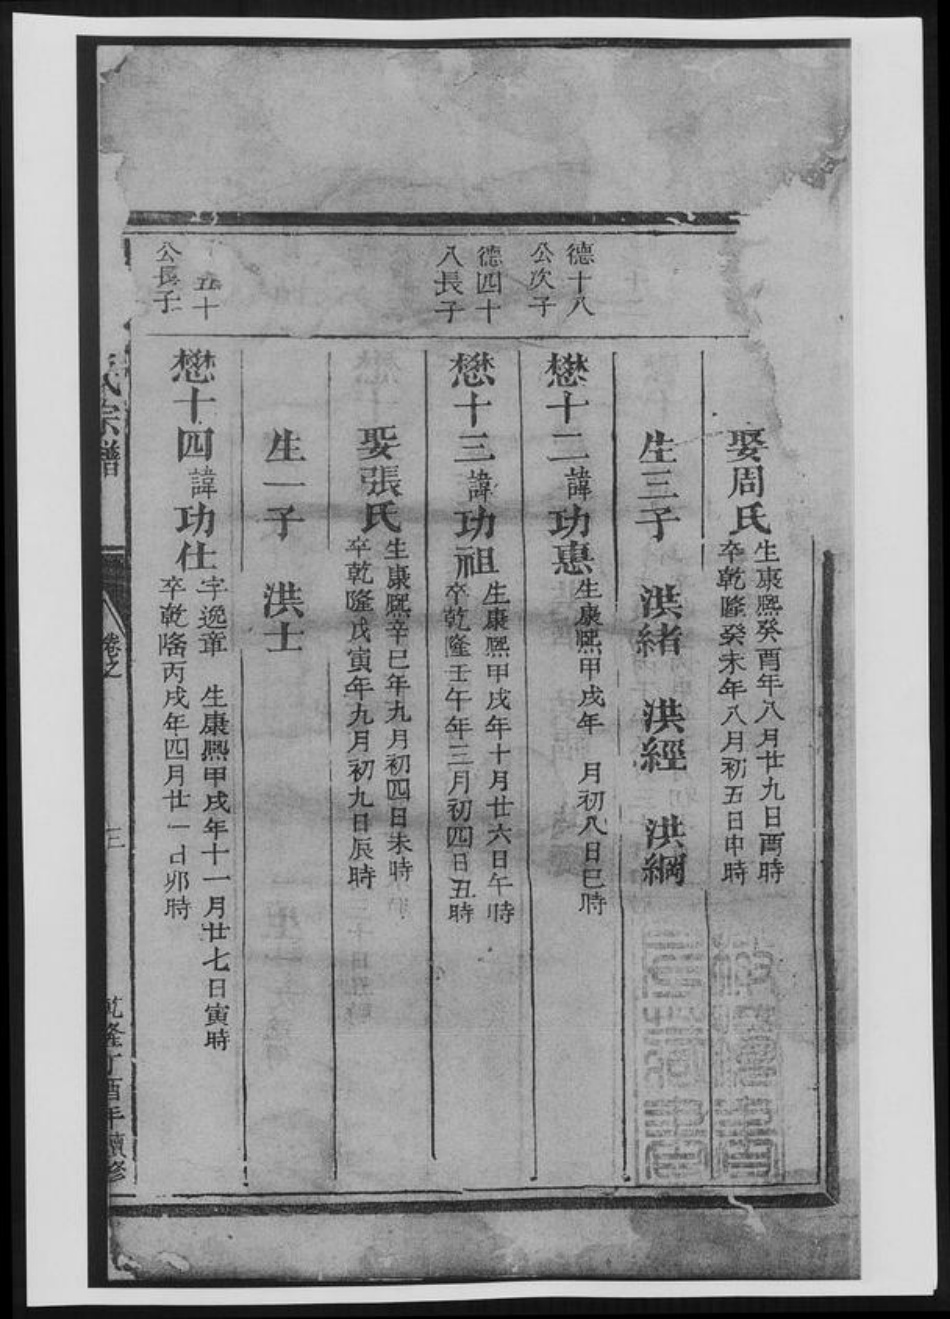 娶周氏
生康熙癸酉年八月廿九日酉時
卒乾隆癸未年八月初五日申時
生三子 洪緒 洪經 洪綱
德十八
公次子
懋十二諱功惠
生康熙甲戌年 月初八日巳時
德四十
八長子
懋十三諱功祖
生康熙甲戌年十月廿六日午時
卒乾隆壬午年三月初四日丑時
娶張氏
生康熙辛巳年九月初四日未時
卒乾隆戊寅年九月初九日辰時
生一子 洪士
五十
公長子
懋十四諱功仕
字逸章 生康熙甲戌年十一月廿七日寅時
卒乾隆丙戌年四月廿一日卯時
氏宗譜
卷之
三
乾隆丁酉年續修